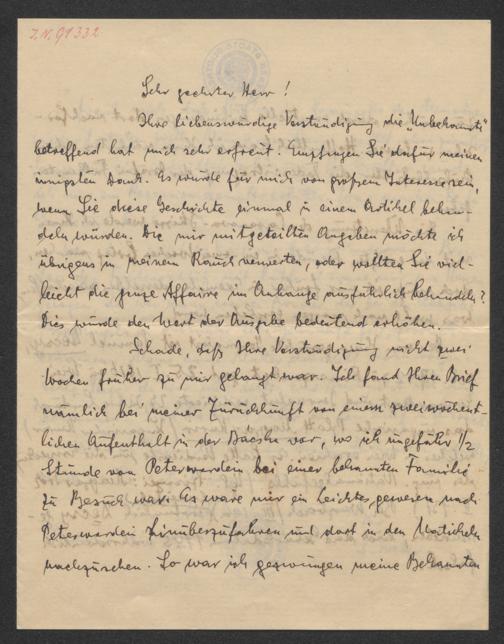 J.N. 91332
Sehr geehrter Herr!
Ihre liebenswürdige Verständigung die „Unbekannte"
betreffend hat mich sehr erfreut. Empfangen Sie dafür meinen
innigsten Dank. Es würde für mich von großem Interesse sein,
wenn Sie diese Geschichte einmal in einem Artikel behan-
deln würden. Die mir mitgeteilten Angaben möchte ich
übrigens in meinem verwerten, oder wollten Sie viel-
leicht die ganze Affaire im Anhange ausführlich behandeln?
Dies würde den Wert der Ausgabe bedeutend erhöhen.
Schade, daß Ihre Verständigung nicht zwei
Wochen früher zu mir gelangt war. Ich fand Ihren Brief
nämlich bei meiner Zurückkunft von einem zweiwöchent-
lichen Aufenthalt in der Bácska vor, wo ich ungefähr 1/2
Stunde von Peterwardein bei einer bekannten Familie
zu Besuch war. Es wäre mir ein Leichtes gewesen nach
Peterwardein hinüberzufahren und dort in den Matrikeln
nachzusehen. So war ich gezwungen meine Bekannten